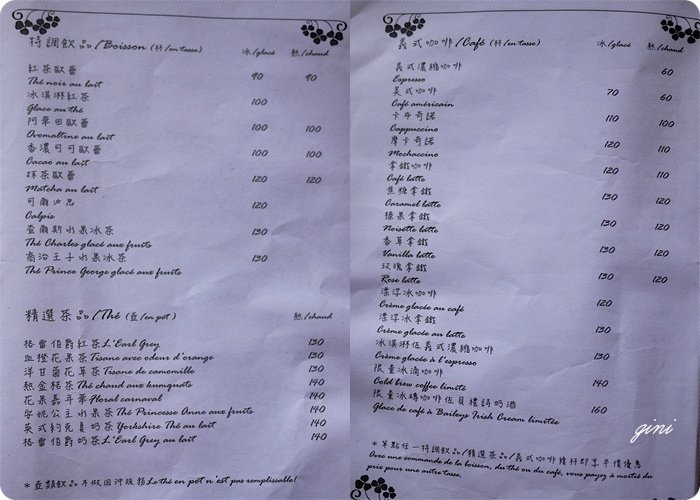 特調飲品/Boisson (杯/en tasse) 冰/glacé 熱/chaud
紅茶歐蕾 90 90
Thé noir au lait
冰淇淋紅茶 100
Glace au thé
阿華田歐蕾 100 100
Ovomaltine au lait
香濃可可歐蕾 100 100
Cacao au lait
抹茶歐蕾 120 120
Matcha au lait
可爾必思 120
Calpis
查爾斯水果冰茶 130
Thé Charles glacé aux fruits
喬治王子水果冰茶 130
Thé Prince George glacé aux fruits
精選茶品/Thé (壺/en pot) 熱/chaud
格雷伯爵紅茶L'Earl Grey 130
血橙花果茶Tisane avec odeur d'orange 130
洋甘菊花草茶Tisane de camomille 130
熱金桔茶Thé chaud aux kumquats 140
花果嘉年華Floral carnaval 140
安妮公主水果茶The Princesse Anne aux fruits 140
英式約克夏奶茶Yorkshire Thé au lait 140
格雷伯爵奶茶L'Earl Grey au lait 140
*壺類飲品不做回沖服務Le thé en pot n'est pas remplissable!
義式咖啡/Café (杯/en tasse) 冰/glacé 熱/chaud
義式濃縮咖啡 60
Espresso
美式咖啡 70 60
Café américain
卡布奇諾 110 100
Cappuccino
摩卡奇諾 120 110
Mochaccino
拿鐵咖啡 120 110
Café latte
焦糖拿鐵 130 120
Caramel latte
榛果拿鐵 130 120
Noisette latte
香草拿鐵 130 120
Vanilla latte
玫瑰拿鐵 130 120
Rose latte
漂浮冰咖啡 120
Crème glacée au café
漂浮冰拿鐵 130
Crème glacée au latte
冰淇淋佐義式濃縮咖啡 130
Crème glacée à l'espresso
限量冰滴咖啡 140
Cold brew coffee limité
限量冰磚咖啡佐貝禮詩奶酒 160
Glace de café à Baileys Irish Cream limitée
*單點任一特調飲品/精選茶品/義式咖啡續杯即享半價優惠
Avec une commande de la boisson, du thé ou du café, vous payez à moitié du
prix pour une autre tasse.
gini